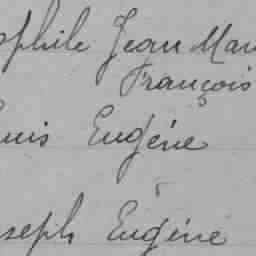 ophile Jean Mar
François
ouis Eugéne
oseph Eugéne